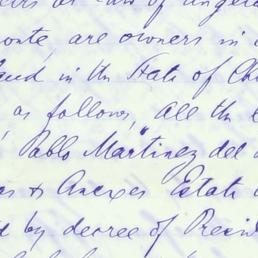 as law of
onte, are owners in
and in the State of Ch
as follows, all the
Pablo Martinez del
as & Anexes Estate
d by decree of Presid